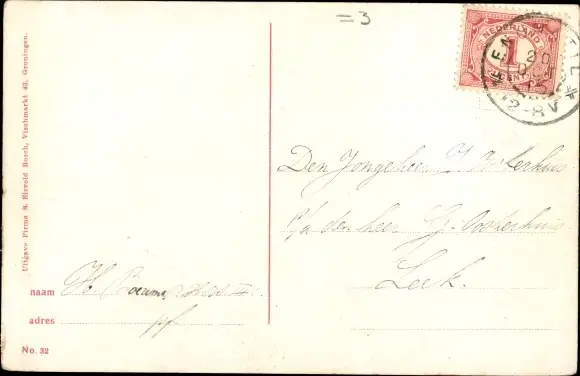 =3
NEDERLAND
1
CENT
20
Den Jongeheer J. Oosterhuis
p/a den heer G. Oosterhuis
Leek.
Uitgave Firma S. Eisveld Bosch, Vischmarkt 43, Groningen.
naam H. Boerma
adres pf
No. 32